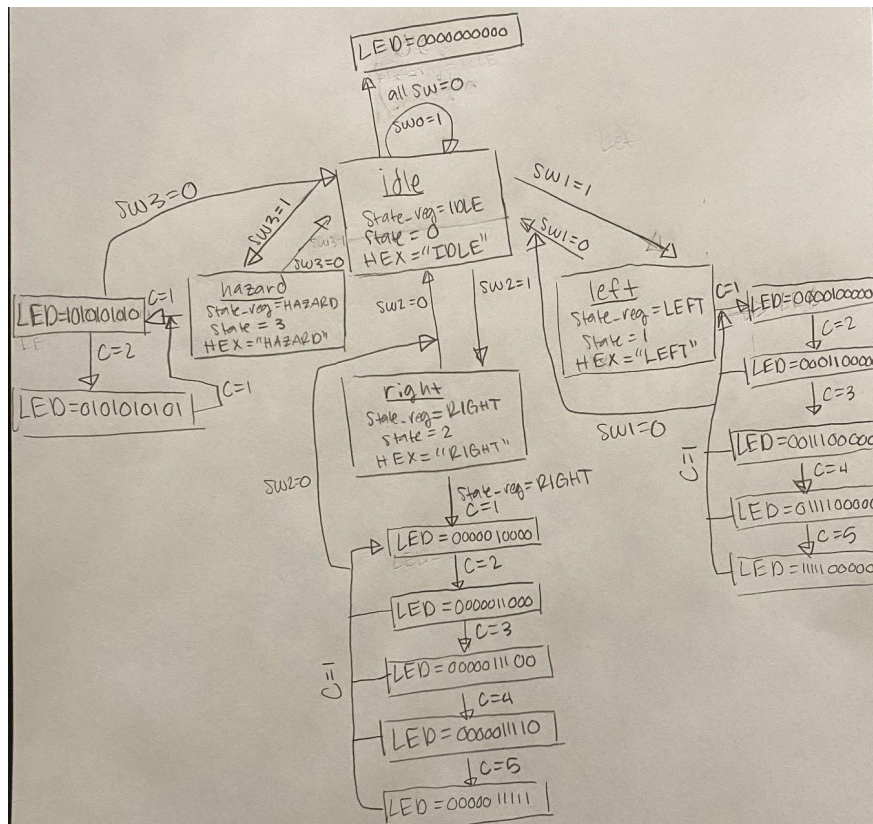 LED=0000000000
all SW=0
SW0=1
idle
State_reg=IDLE
State=0
HEX="IDLE"
SW3=0
SW3=1
SW3=0
SW1=1
SW1=0
hazard
State_reg=HAZARD
State=3
HEX="HAZARD"
C=1
LED=1010101010
C=2
LED=0101010101
C=1
SW2=0
SW2=1
left
State_reg=LEFT
State=1
HEX="LEFT"
C=1
LED=0000100000
C=2
LED=0001100000
C=3
LED=0011100000
C=4
LED=0111100000
C=5
LED=1111100000
C=1
SW1=0
right
State_reg=RIGHT
State=2
HEX="RIGHT"
SW2=0
State_reg=RIGHT
C=1
LED=0000010000
C=2
LED=0000011000
C=3
LED=0000011100
C=4
LED=0000011110
C=5
LED=0000011111
C=1